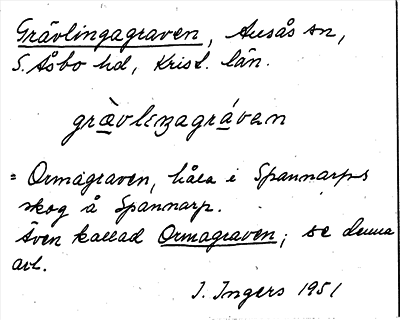 Grävlingagraven, Ausås sn,
S. Åsbo hd, Krist. län.
grävliŋagráven
= Ormagraven, håla i Spannarps
skog å Spannarp.
Även kallad Ormagraven; se denna
avl.
I. Ingers 1951